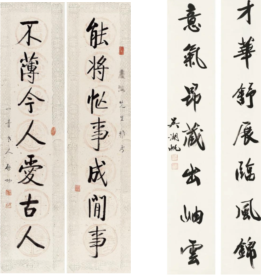 才華舒展臨風錦
意氣昂藏出岫雲
吳湖帆
能將忙事成閒事
不薄今人愛古人